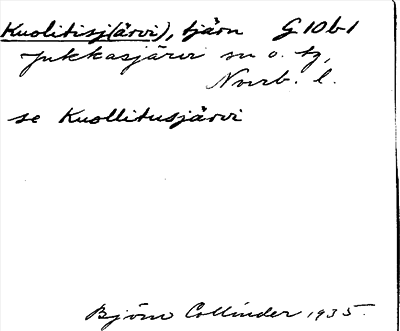 Kuolitisj(ärvi), tjärn G10b1
Jukkasjärvi sn o. tg,
Norrb. l.
se Kuollitusjärvi
Björn Collinder 1935.